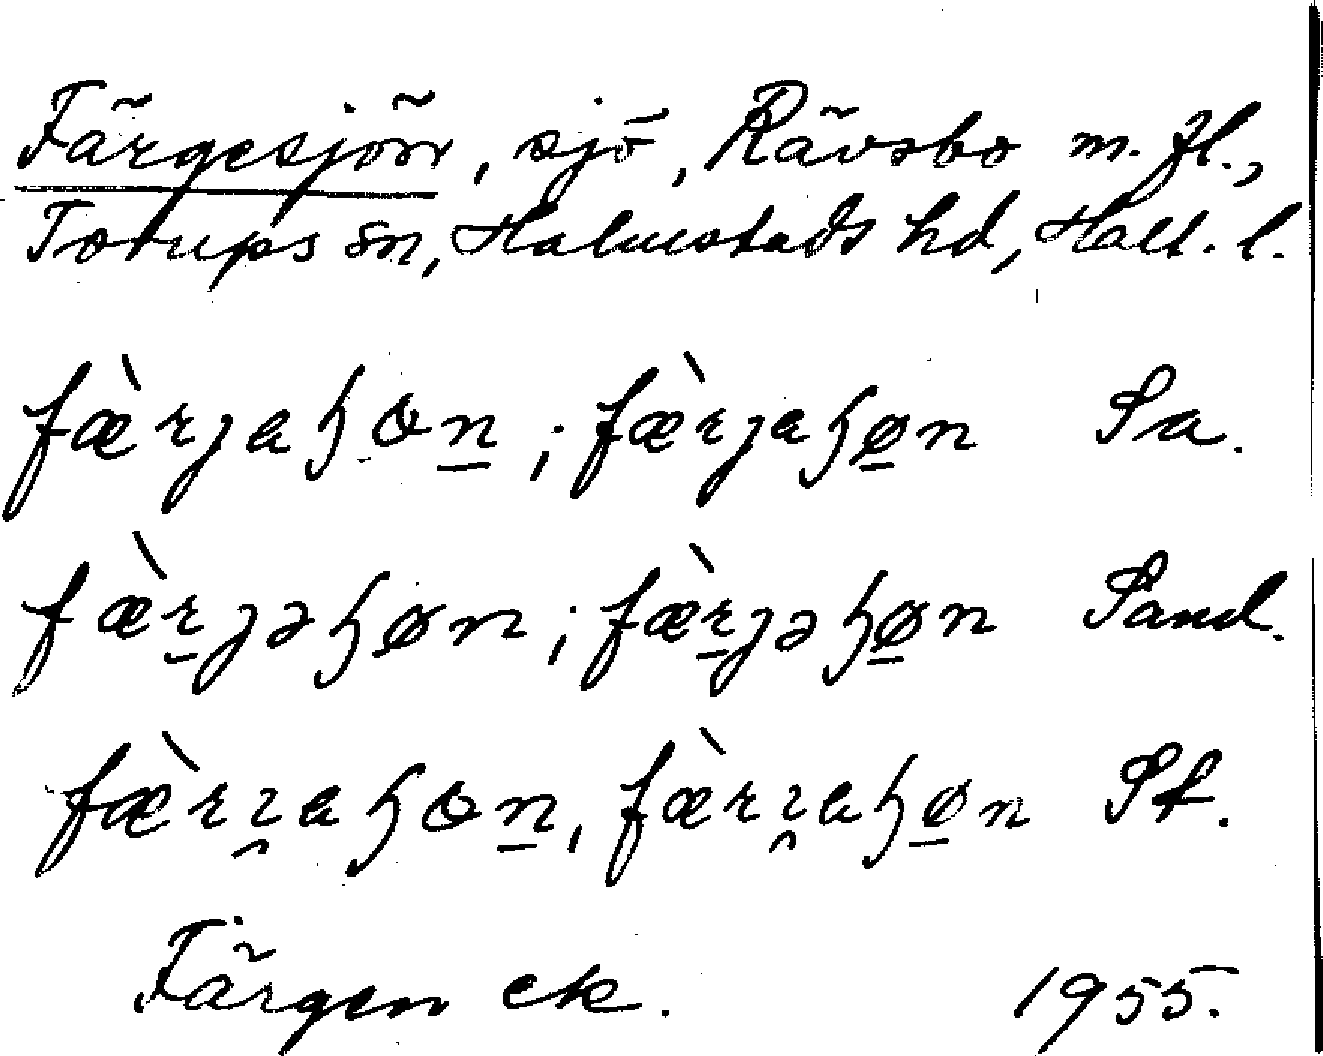 Färgesjön, sjö, Rävsbo m. fl.,
Torups sn, Halmstads hd, Hall. l.
fæ̀rjaɧon̲; fæ̀rjaɧø̲n Sa.
fæ̀r̲jəɧøn; fæ̀r̲jəɧø̲n Sand.
fæ̀rı̯aɧon̲, fæ̀rı̯aɧø̲n St.
Färgen ek. 1955.